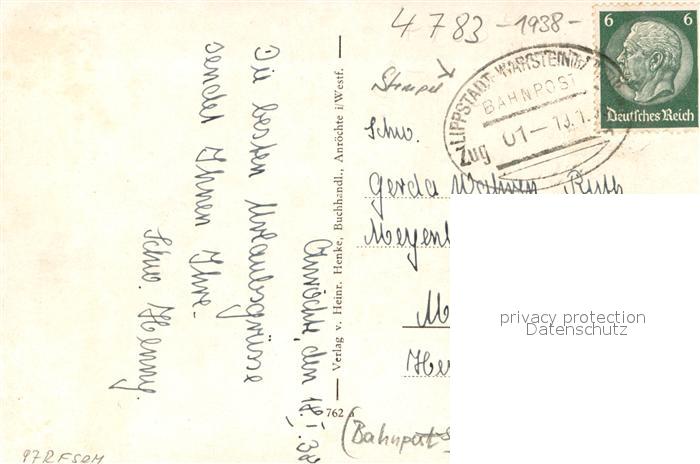 4783 -1938-
6 6
Deutsches Reich
Stempel
LIPPSTADT-WARSTEIN
BAHNPOST
Zug 01- 1
Schw.
Gerda Ruth
Meyen
M
Her
privacy protection
Datenschutz
(Bahnpost S
Verlag v. Heinr. Henke, Buchhandl., Anröchte i/Westf.
762
Anröchte, den 18.I.38
Die besten Urlaubsgrüsse
sendet Ihnen Ihre
Schw. Henny.
97RFSRM